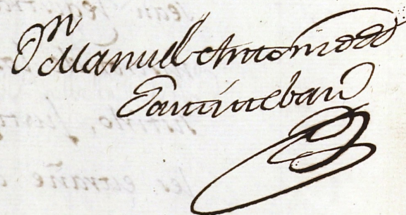 Dn Manuel Antonio de
Santisteban